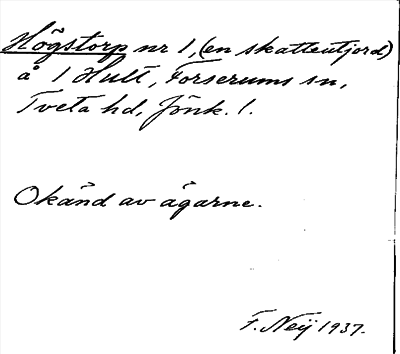 Högstorp nr 1, (en skatteutjord)
å 1 Hult, Forserums sn,
Tveta hd, Jönk. l.
Okänd av ägarne.
F. Neij 1937.